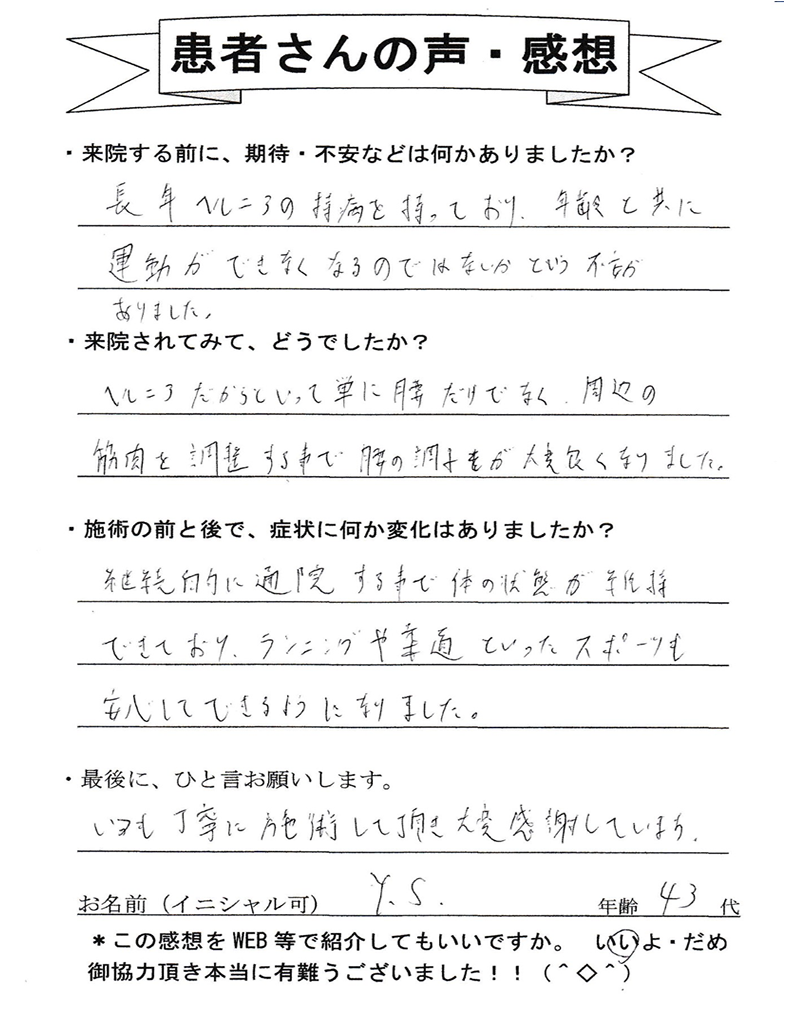 患者さんの声・感想
・来院する前に、期待・不安などは何かありましたか？
長年ヘルニアの持病を持っており、年齢と共に
運動ができなくなるのではないかという不安が
ありました。
・来院されてみて、どうでしたか？
ヘルニアだからといって単に腰だけでなく、周辺の
筋肉を調整する事で腰の調子が大変良くなりました。
・施術の前と後で、症状に何か変化はありましたか？
継続的に通院する事で体の状態が維持
できており、ランニングや柔道といったスポーツも
安心してできるようになりました。
・最後に、ひと言お願いします。
いつも丁寧に施術して頂き大変感謝しています。
お名前（イニシャル可） Y.S. 年齢 43 代
＊この感想を WEB 等で紹介してもいいですか。 いいよ・だめ
御協力頂き本当に有難うございました！！（＾◇＾）